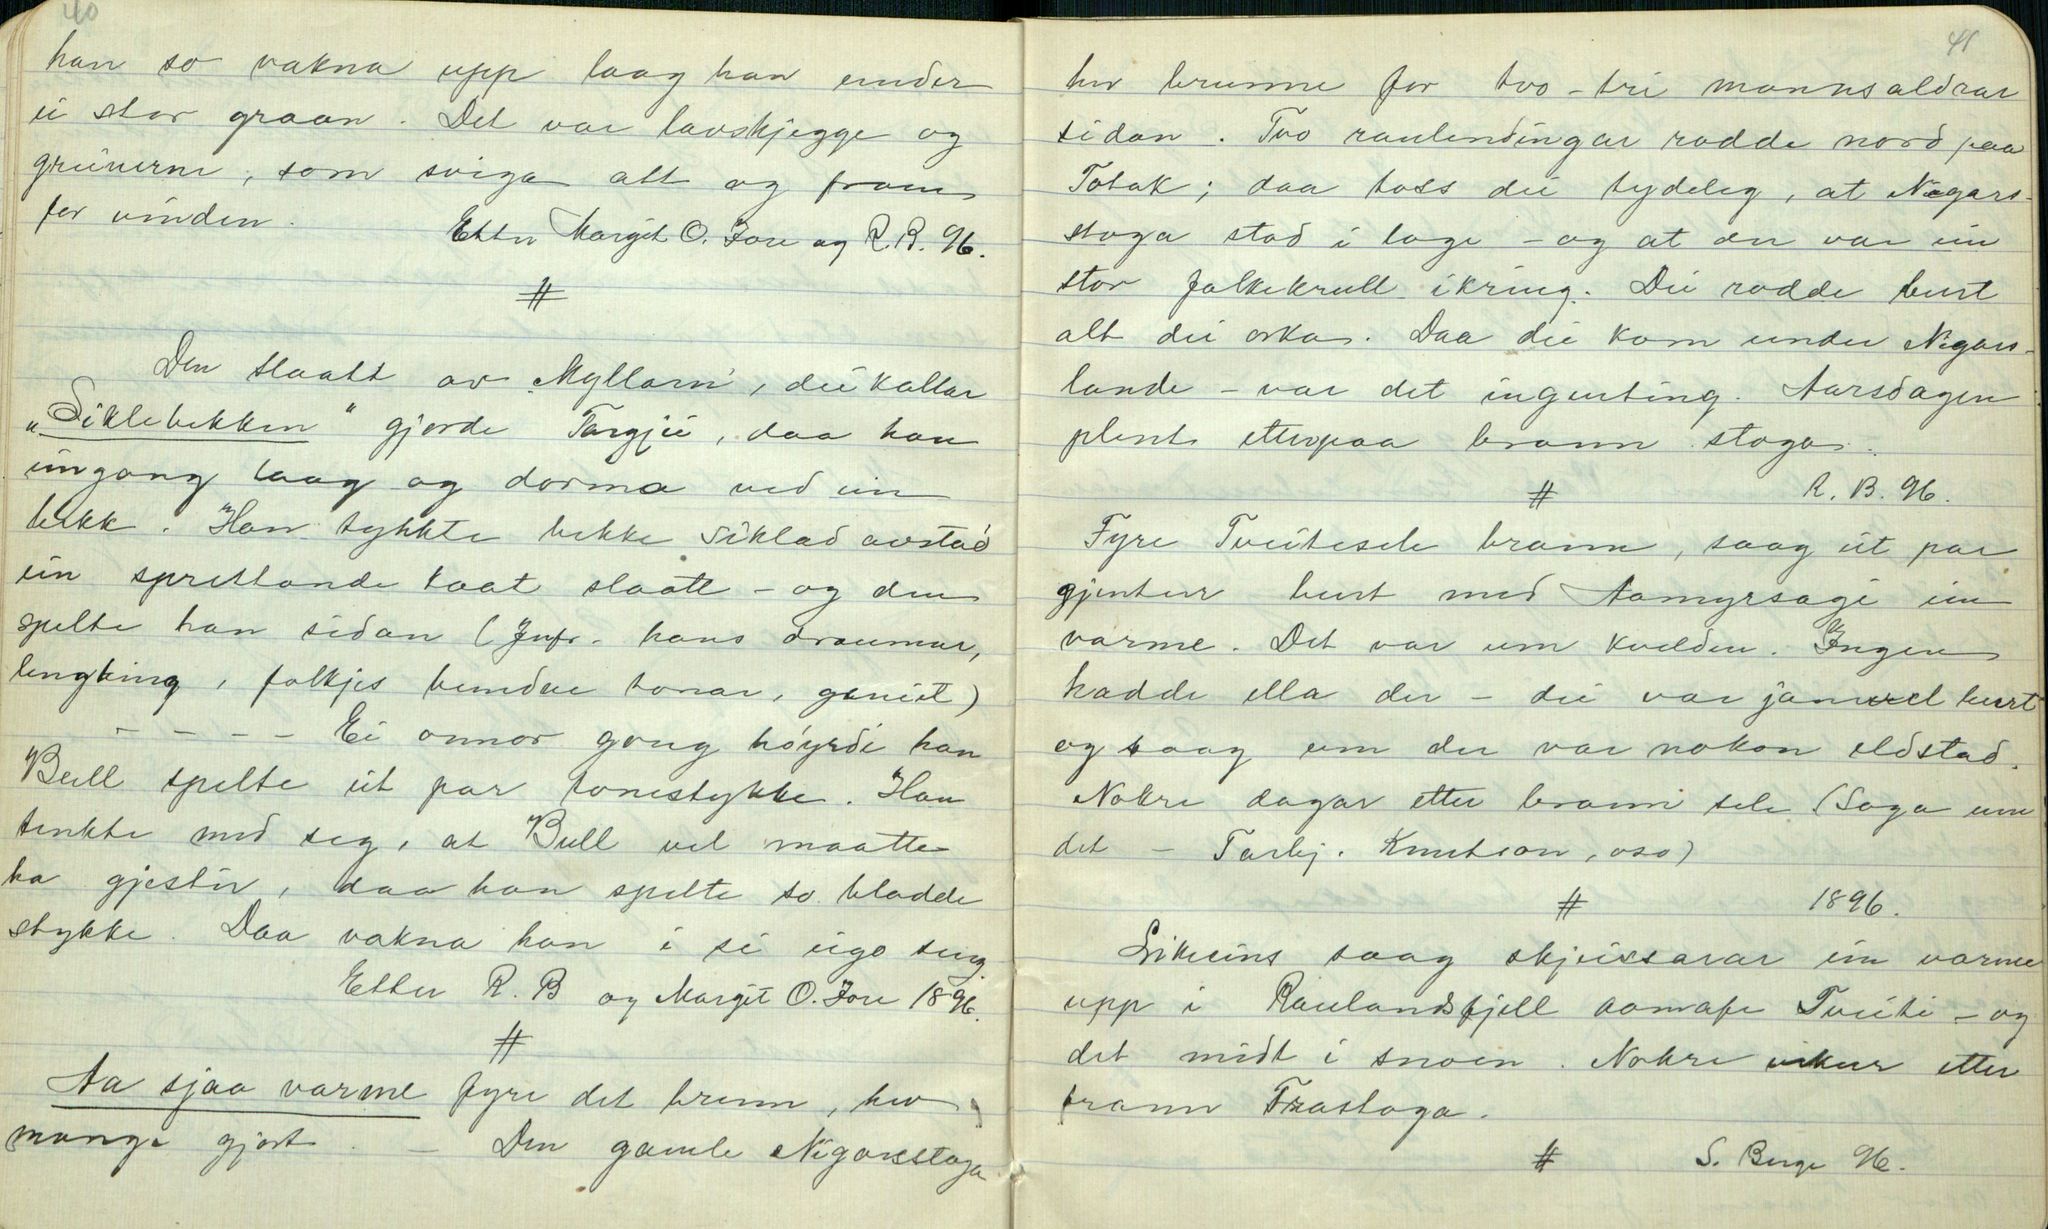 40
han so vakna upp laag han under
ei stor graan. Det var lavskjegge og
greinerne, som sviga att og fram
for vinden.
Etter Margit O. Fore og R. B. 96.
#
Den slaatt av Myllarn, dei kallar
„Siklebekken“ gjorde Targjei, daa han
eingong laag og dorma ved ein
bekk. Han tykkte bekke siklad avstad
ein sprettande kaat slaatt - og den
spelte han sidan (Jmfr. hans draumar,
lengking, folkjes bundne tonar, geniet)
- - - - Ei onnor gong høyrde han
Bull spelte eit par tonestykke. Han
tenkte med seg, at Bull vel maatte
ha gjestir, daa han spelte so bladde
stykke. Daa vakna han i si eigo seng.
Etter R. B og Margit O. Fore 1896.
#
Aa sjaa varme fyre det brenn, hev
mange gjort. - Den gamle Nigarsstoga
41
hev brunne for tvo-tri mannsaldrar
sidan. Tvo raulendingar rodde nord paa
Totak; daa toss dei tydeleg, at Nigars-
stoga stod i loge - og at der var ein
stor folkekrull ikring. Dei rodde burt
alt dei orka. Daa dei kom under Nigars-
lande - var det ingenting. Aarsdagen
plent etterpaa brann stoga.
# R. B. 96.
Fyre Tveitesele brann, saag eit par
gjentur burt med Aamyrsagi ein
varme. Det var um kvelden. Ingen
hadde ella der - dei var jamvel burt
og saag um der var nokon eldstad.
Nokre dagar etter brann sele (Soga um
det - Tarbj. Knutson, oso)
# 1896.
Likeeins saag skjeissarar ein varme
upp i Raulandsfjell aamafe Tveiti - og
det midt i snoen. Nokre vikur etter
brann Frastoga.
# S. Berge 96.